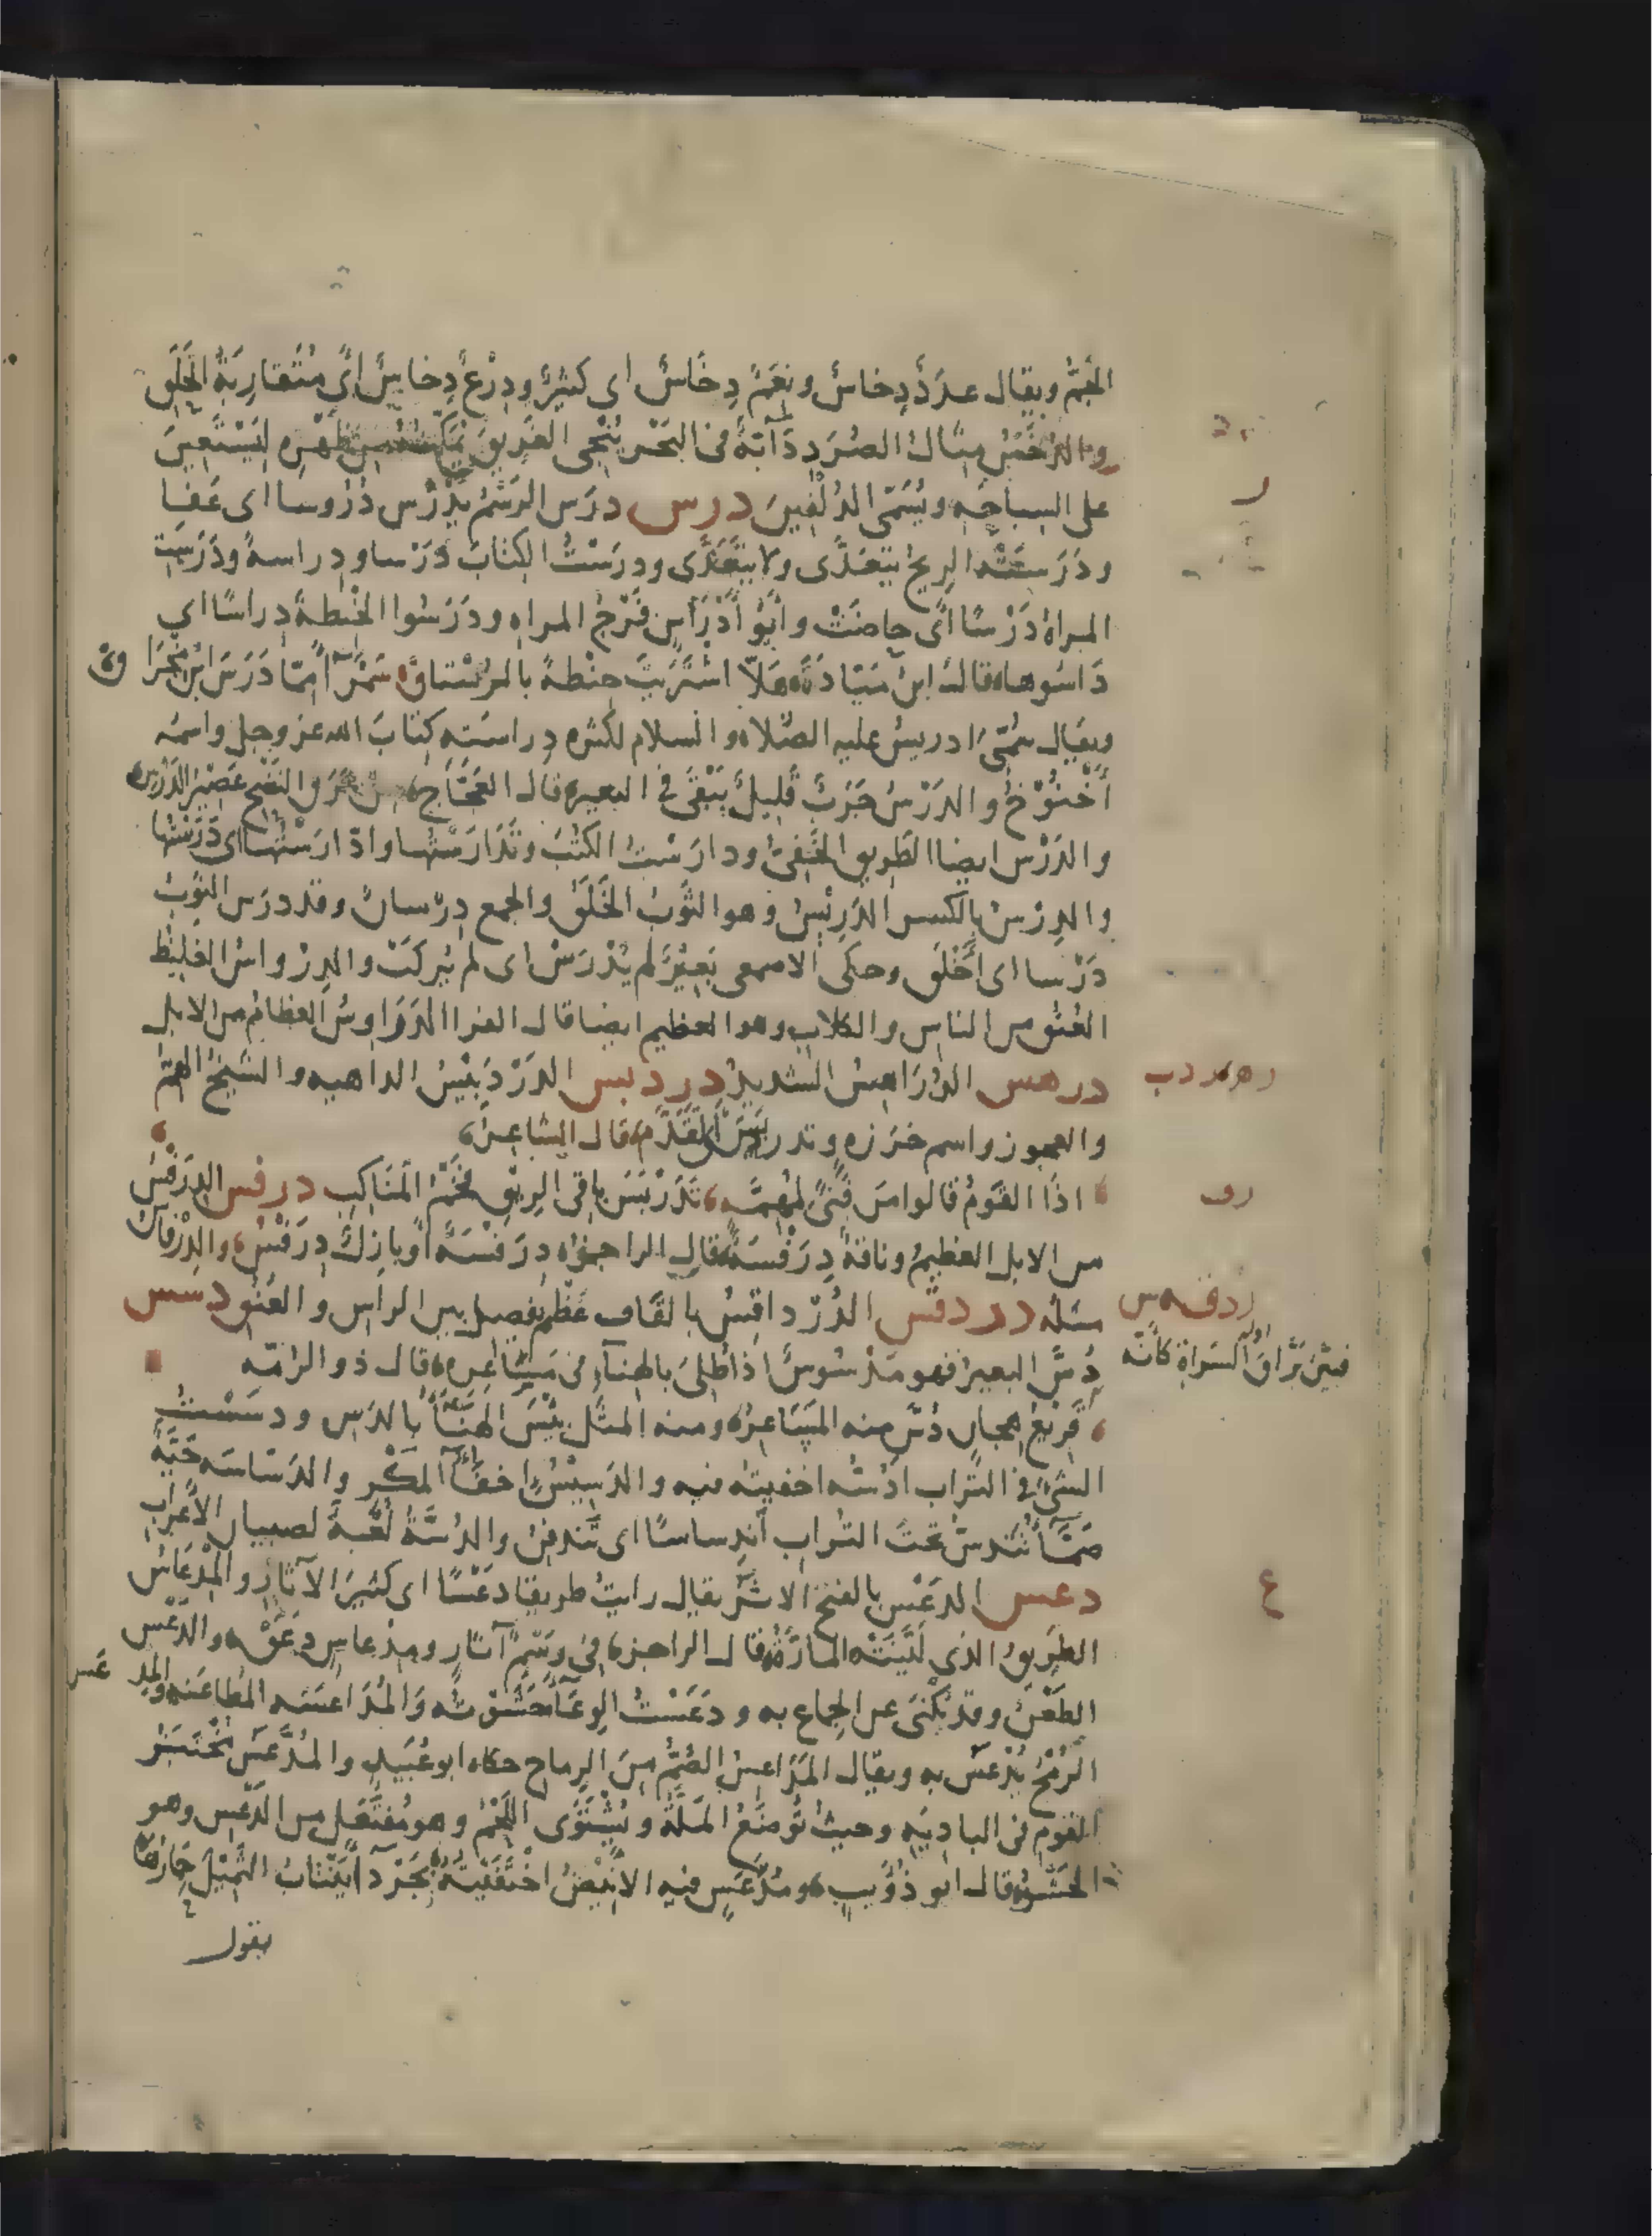 الجَمُّ ويقال عددٌ دِخاسٌ ونعَمٌ دِخَاسٌ اى كثيرٌ ودِرْعٌ دِخاسٌ اىْ مُتَقارِبَةُ الحَلَق
والدُخَسُ مثال الصُرَدِ دَآبّةٌ فى البَحْر يُنْجى الغَريقَ يُمَكِّنُه من ظَهْرِه ليَسْتَعِينَ
على السباحَه ويُسَمّى الدُلْفِينَ درس درَسَ الرَسْمُ يَدْرُس دُرُوسا اى عَفا
ودَرَسَتْه الريحُ يتعدَّى ولا يتَعَدَّى ودرَسْتُ الكتابَ دَرْسا ودِراسةً ودَرَسَتِ
المراةُ دَرْسًا اىْ حاضَتْ وابُو أَدْرَاسٍ فَرْجُ المراه ودَرَسُوا الحِنطةَ دِراسًا اي
دَاسُوها قال ابنُ مَيّادَةَ هَلاّ اشتَرَيتَ حِنْطةً بالرُسْتاقْ سَمْرآءَ مِمّا دَرَسَ ابنُ مِخْرَاقْ
ويقال سُمّىَ ادريسُ عليه الصّلاه والسلام لكثره دِراستِه كتابَ الله عز وجل واسمُه
أَخْنُوْخُ والدَرْسُ جَرَبٌ قَليلٌ يَبْقَى فى البعير قال العَجّاج من عَرَقِ النَضْحِ عَصِيْمُ الدَرْسِ
والدَرْس ايضا الطَرِيق الخَفِىُّ ودارَسْتُ الكتُبَ وتَدَارَسْتُها وادّارَسْتُها اى دَرَسْتُها
والدِرْسُ بالكسر الدَرِيْسُ وهو الثَوبُ الخَلَقُ والجمع دِرْسانٌ وقد درَس الثوبُ
دَرْسا اى أَخْلَقَ وحكى الاصمعى بَعِيْرٌ لم يُدَرَّسْ اى لم يُركَبْ والدِرْواسُ الغَليْظ
العُنُقِ من الناس والكلاب وهو العظيم ايضا قال الفرا الدَرَاوِسُ العظامُ من الابل
درهس الدُرَاهِسُ الشديدُ دردبس الدَرْدَبِيْسُ الداهيه والشيخُ الهِمُّ
والعجوز واسم خرزه وتدربَسَ تَقَدَّم قال الشاعرُ
اذَا القَومُ قالوا مَن فَتىً لمُهِمَّه تَدَرْبَسَ باقى الرِيْقِ فَخْمُ المَنَاكِبِ درفس الدِرَفْسُ
من الابل العظيمُ وناقةٌ دِرَفْسَةٌ قال الراجز دِرَفْسَةٌ أو بازِلٌ دِرَفْسُ والدِرْفاسُ
مثله دردقس الدُرْدَاقِسُ بالقاف عَظْم يفصل بين الراس والعُنُق دسس
دُسَّ البعيرُ فهو مَدْسُوسٌ اذا طُلِىَ بالهِنآءِ فى مَسَاعِرِه قال ذو الرُمّه
فبَيّنَّ بَرّاقَ السَراةِ كأنّه
قَرِيْعُ هِجانٍ دُسَّ منه المَسَاعِرُ ومنه المثَل ليْسَ الهِنَآءُ بالدَسِ ودسَسْتُ
الشئَ فى التُراب ادُسُّه اخفيتُه فيه والدَسِيْسُ اخفَآءُ المَكْر والدَسّاسَه حَيّةٌ
صَمّآءُ تَنْدَسّ تحتَ التُراب آندِساسًا اى تَندفِنُ والدُسَّةُ لُعْبةٌ لصبيان الأعراب
دعس الدَعْسُ بالفتح الاثَرُ يقال رايتُ طريقا دَعْسًا اى كثيرَ الآثارِ والمِدْعاسُ
الطَريقُ الذى لَيَّنَتْه المارّةُ قال الراجز فى رَسْمِ آثارٍ ومِدْعاسٍ دَعَقْ والدَعْس
الطَعْنُ وقد يُكْنَى عن الجِماع به ودَعَسْتُ الوِعآءَ حَشَوْتُه والمُدَاعَسَه المُطاعَنه والمِدعَس
الرُمْحُ يُدْعَسُ به ويقال المَدَاعِسُ الصُمُّ مِنَ الرماح حكاه ابو عُبَيد والمُدَّعَسُ مُخْتَبَزُ
القوم فى الباديَه وحيثُ تُوضَعُ المَلّةُ ويُشْتَوَى اللَحْمُ وهو مُفتَعَل من الدَعْس وهو
الحَشْوُ قال ابو ذُؤَيب ومُدَّعَسٍ فيه الانيْضُ اختَفَيْتَهُ بِجَرْدآءَ يَنتابُ الثَمِيْلَ حِمَارُها
يقول